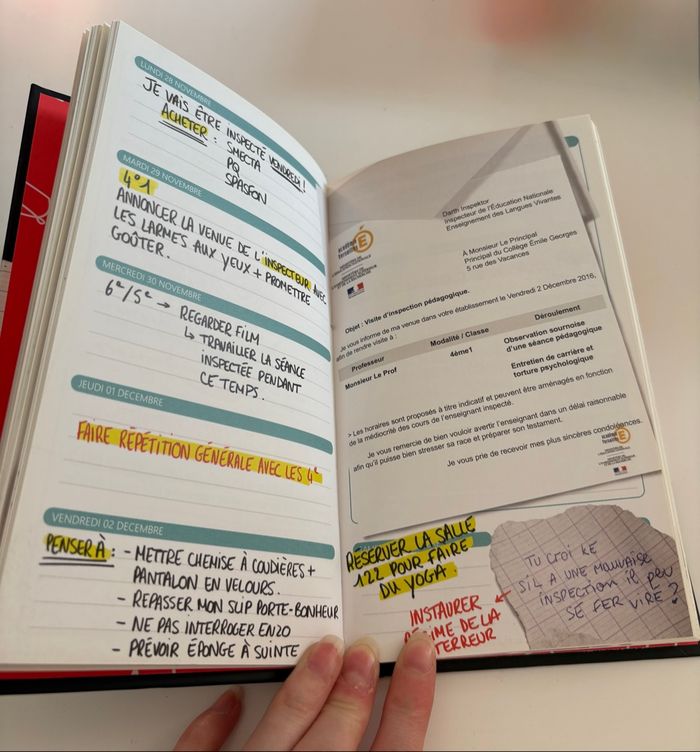 LUNDI 28 NOVEMBRE
JE VAIS ÊTRE INSPECTÉ VENDREDI !
ACHETER : SMECTA
PQ
SPASFON
MARDI 29 NOVEMBRE
4°1
ANNONCER LA VENUE DE L'INSPECTEUR AVEC
LES LARMES AUX YEUX + PROMETTRE
GOÛTER.
MERCREDI 30 NOVEMBRE
6e/5e → REGARDER FILM
↳ TRAVAILLER LA SÉANCE
INSPECTÉE PENDANT
CE TEMPS.
JEUDI 01 DECEMBRE
FAIRE RÉPÉTITION GÉNÉRALE AVEC LES 4e
VENDREDI 02 DECEMBRE
PENSER À : - METTRE CHEMISE À COUDIÈRES +
PANTALON EN VELOURS.
- REPASSER MON SLIP PORTE-BONHEUR
- NE PAS INTERROGER ENZO
- PRÉVOIR ÉPONGE À SUINTE
Darth Inspektor
Inspecteur de l'Éducation Nationale
Enseignement des Langues Vivantes
À Monsieur Le Principal
Principal du Collège Emile Georges
5 rue des Vacances
Objet : Visite d'inspection pédagogique.
Je vous informe de ma venue dans votre établissement le Vendredi 2 Décembre 2016,
afin de rendre visite à :
Professeur Modalité / Classe Déroulement
Monsieur Le Prof 4ème1 Observation sournoise
d'une séance pédagogique
Entretien de carrière et
torture psychologique
> Les horaires sont proposés à titre indicatif et peuvent être aménagés en fonction
de la médiocrité des cours de l'enseignant inspecté.
Je vous remercie de bien vouloir avertir l'enseignant dans un délai raisonnable
afin qu'il puisse bien stresser sa race et préparer son testament.
Je vous prie de recevoir mes plus sincères condoléances.
RÉSERVER LA SALLE
122 POUR FAIRE
DU YOGA.
TU CROI KE
SIL A UNE MAUVAISE
INSPECTION IL PEU
SE FER VIRÉ ?
INSTAURER
RÉGIME DE LA
TERREUR